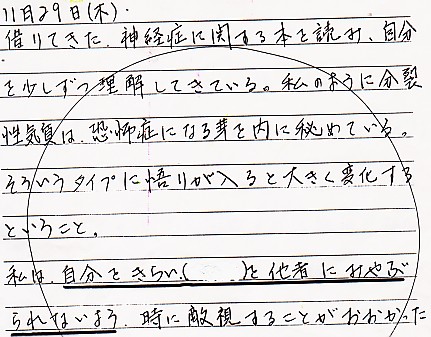 11月29日(木).
借りてきた、神経症に関する本を読み、自分
を少しずつ理解してきている。私のように分裂
性気質は、恐怖症になる芽を内に秘めている。
そういうタイプに悟りが入ると大きく変化する
ということ。
私は、自分をきらい( )と他者にみやぶ
られないよう、時に敵視することがおおかった